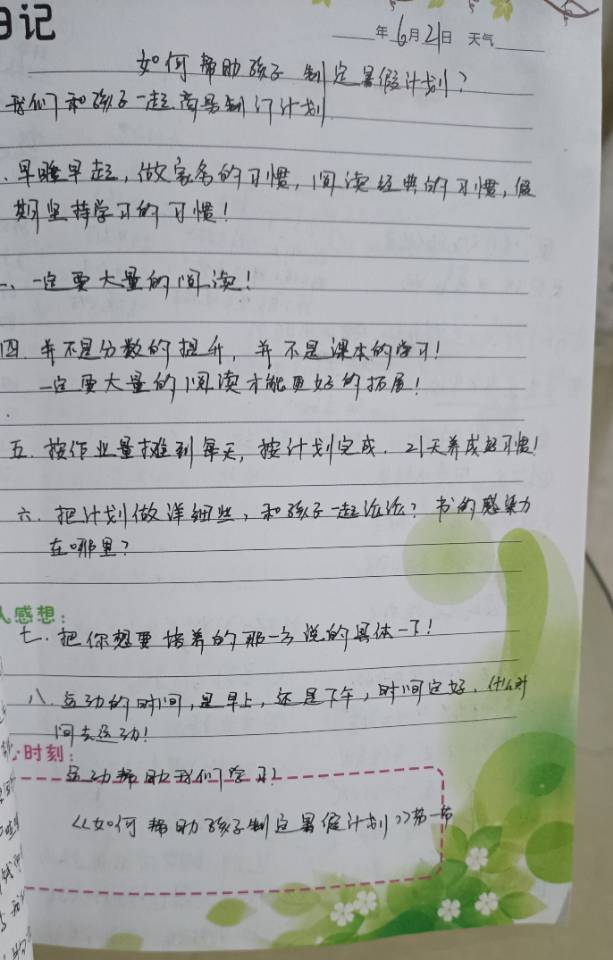 日记
年6月21日 天气
如何帮助孩子制定暑假计划?
我们和孩子一起商量制订计划
.早睡早起,做家务的习惯,阅读经典的习惯,假
期坚持学习的习惯!
一定要大量的阅读!
四.并不是分数的提升,并不是课本的学习!
一定要大量的阅读才能更好的拓展!
五.按作业量摊到每天,按计划完成.21天养成好习惯!
六.把计划做详细些,和孩子一起论论?书的感染力
在哪里?
人感想:
七.把你想要培养的那一方说的具体一下!
八.运动的时间,是早上,还是下午,时间定好.什么时
间去运动!
时刻:
运动帮助我们学习!
《如何帮助孩子制定暑假计划》第一节